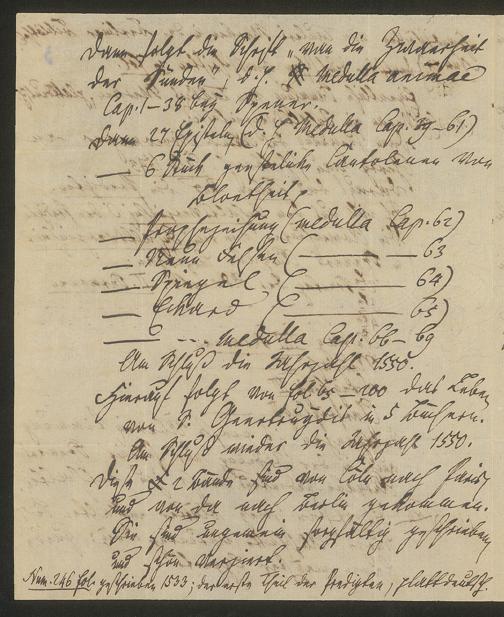 Dann folgt die Schrift „von die Innerheit
der Sünden", d. h. Medulla animae
Cap. 1–38 bey Spener.
Dann 27 Episteln (d. h. Medulla Cap. 39–61)
— 6 Stück geistliche Cantolenen von
bloetheit,
— Prophezeihung (medulla Cap. 62)
— Neun (——— 63
— Spiegel (——— 64)
— Eckard (——— 65)
— --- medulla Cap: 66–69
Am Schluß die Jahrzahl 1550.
Hierauf folgt von fol 65–200 das Leben
von S. Geertruydis in 5 Büchern.
Am Schluß wieder die Jahrzahl 1550.
Diese 2 Bände sind von Cöln nach Paris,
und von da nach Berlin gekommen.
Sie sind ungemein sorgfältig geschrieben
und schön verziert.
Num. 246 fol. geschrieben 1533; der erste Theil der Predigten, plattdeutsch.